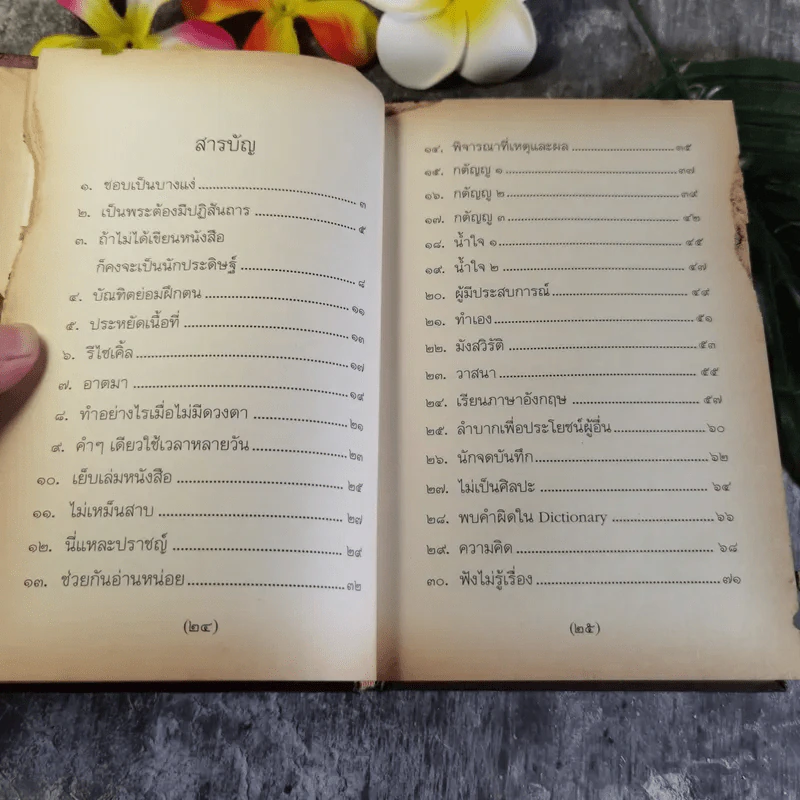 สารบัญ
๑. ชอบเป็นบางแง่ ๓
๒. เป็นพระต้องมีปฏิสันถาร ๕
๓. ถ้าไม่ได้เขียนหนังสือ
ก็คงจะเป็นนักประดิษฐ์ ๘
๔. บัณฑิตย่อมฝึกตน ๑๑
๕. ประหยัดเนื้อที่ ๑๓
๖. รีไซเคิ้ล ๑๗
๗. อาตมา ๑๙
๘. ทำอย่างไรเมื่อไม่มีดวงตา ๒๑
๙. คำๆ เดียวใช้เวลาหลายวัน ๒๓
๑๐. เย็บเล่มหนังสือ ๒๕
๑๑. ไม่เหม็นสาบ ๒๗
๑๒. นี่แหละปราชญ์ ๒๙
๑๓. ช่วยกันอ่านหน่อย ๓๒
(๒๔)
๑๔. พิจารณาที่เหตุและผล ๓๕
๑๕. กตัญญู ๑ ๓๗
๑๖. กตัญญู ๒ ๓๙
๑๗. กตัญญู ๓ ๔๒
๑๘. น้ำใจ ๑ ๔๕
๑๙. น้ำใจ ๒ ๔๗
๒๐. ผู้มีประสบการณ์ ๔๙
๒๑. ทำเอง ๕๑
๒๒. มังสวิรัติ ๕๓
๒๓. วาสนา ๕๕
๒๔. เรียนภาษาอังกฤษ ๕๗
๒๕. ลำบากเพื่อประโยชน์ผู้อื่น ๖๐
๒๖. นักจดบันทึก ๖๒
๒๗. ไม่เป็นศิลปะ ๖๔
๒๘. พบคำผิดใน Dictionary ๖๖
๒๙. ความคิด ๖๘
๓๐. ฟังไม่รู้เรื่อง ๗๑
(๒๕)